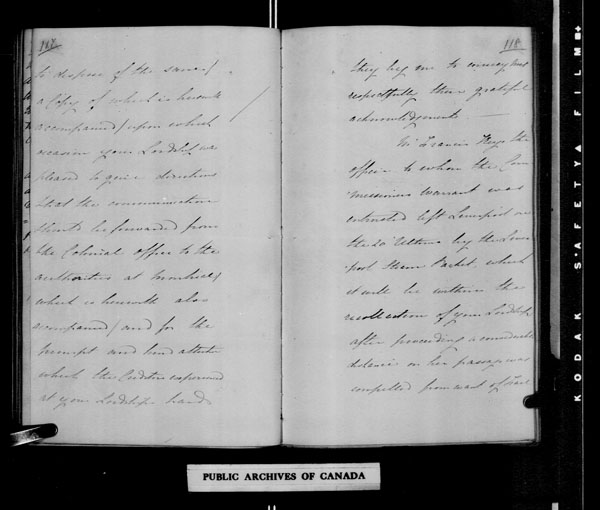 117
to dispose of the same/
a Copy of which is herewith
accompanied/ upon which
occasion your Lordship was
pleased to give directions
that the communication
should be forwarded from
the Colonial office to the
authorities at Montreal/
which is herewith also
accompanied/ and for the
prompt and kind attention
which the Creditors experienced
at your Lordships hands
118
they beg me to convey most
respectfully their grateful
acknowledgments
Mr Francis the
officer to whom the Com
missioners Warrant was
entrusted left Liverpool on
the 20 Ultimo by the Liver
pool Steam Packet which
it will be within the
recollection of your Lordship
after proceeding a considerable
distance on her passage was
compelled from want of Fuel
PUBLIC ARCHIVES OF CANADA
KODAK SAFETY FILM